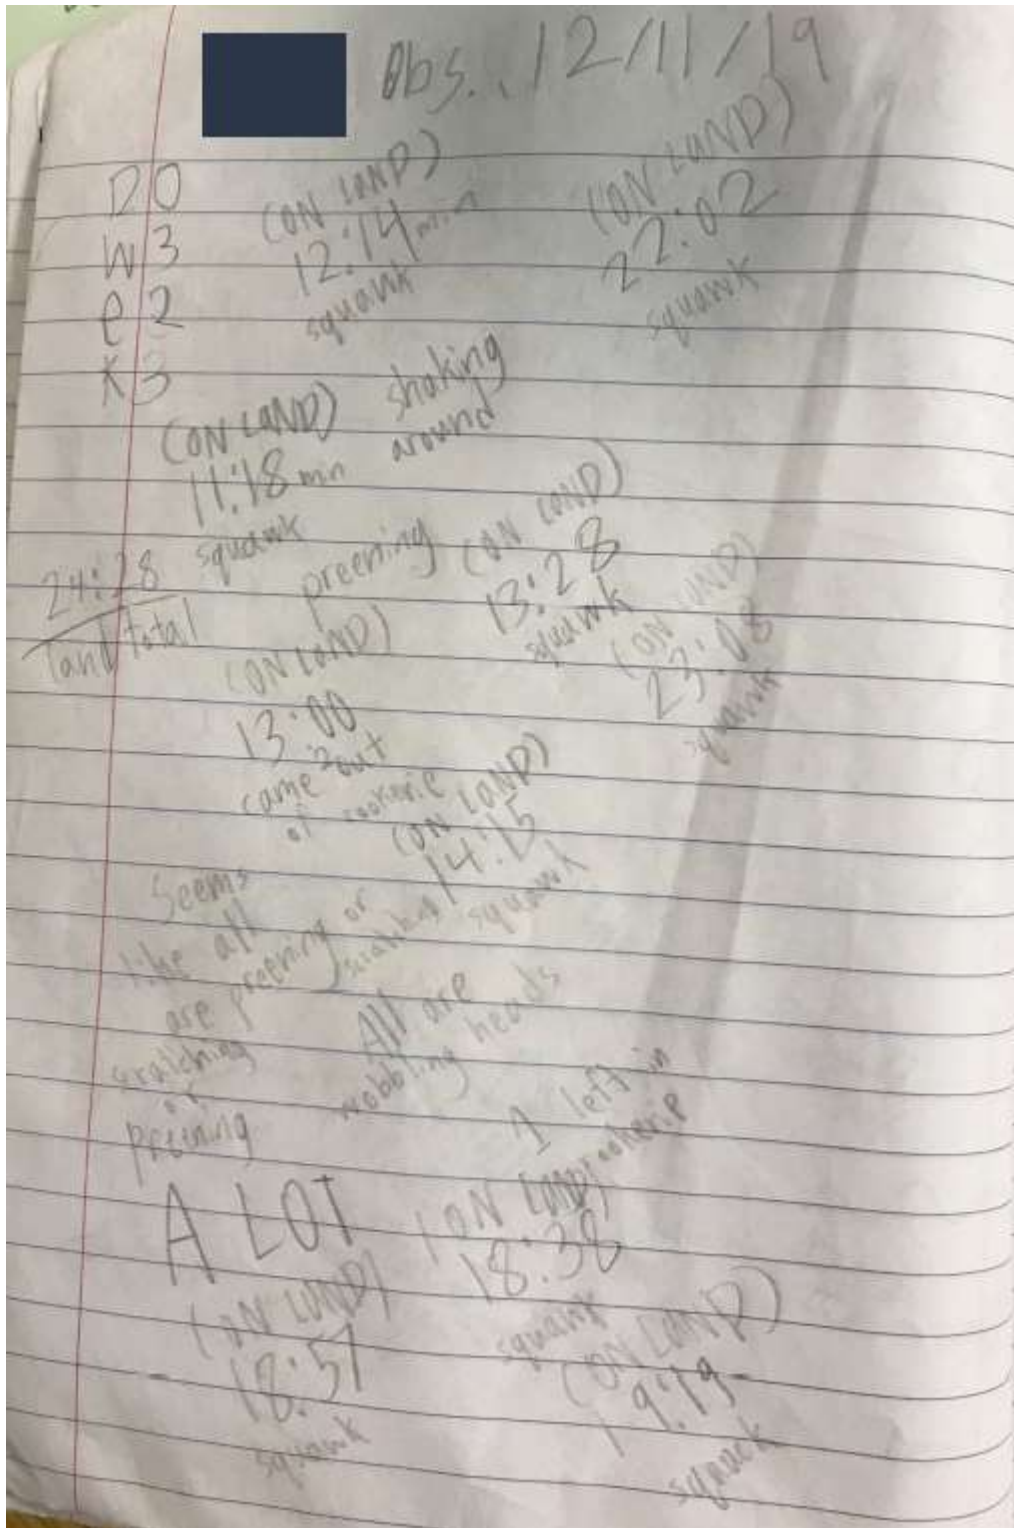 Obs. 12/11/19
D 0
W 3
e 2
K 3
(ON LAND)
12:14 min
squawk
(ON LAND)
22:02
squawk
(ON LAND)
11:18 min
squawk
shaking
around
24:28
land total
preening
(ON LAND)
13:28
squawk
(ON LAND)
23:08
squawk
(ON LAND)
13:00
came out
of rookerie
(ON LAND)
14:15
squawk
Seems
like all
are preening or
scratching
or
preening
All are
wobbling heads
A LOT
1 left in
rookerie
(ON LAND)
18:38
squawk
(ON LAND)
18:57
squawk
(ON LAND)
19:19
squack